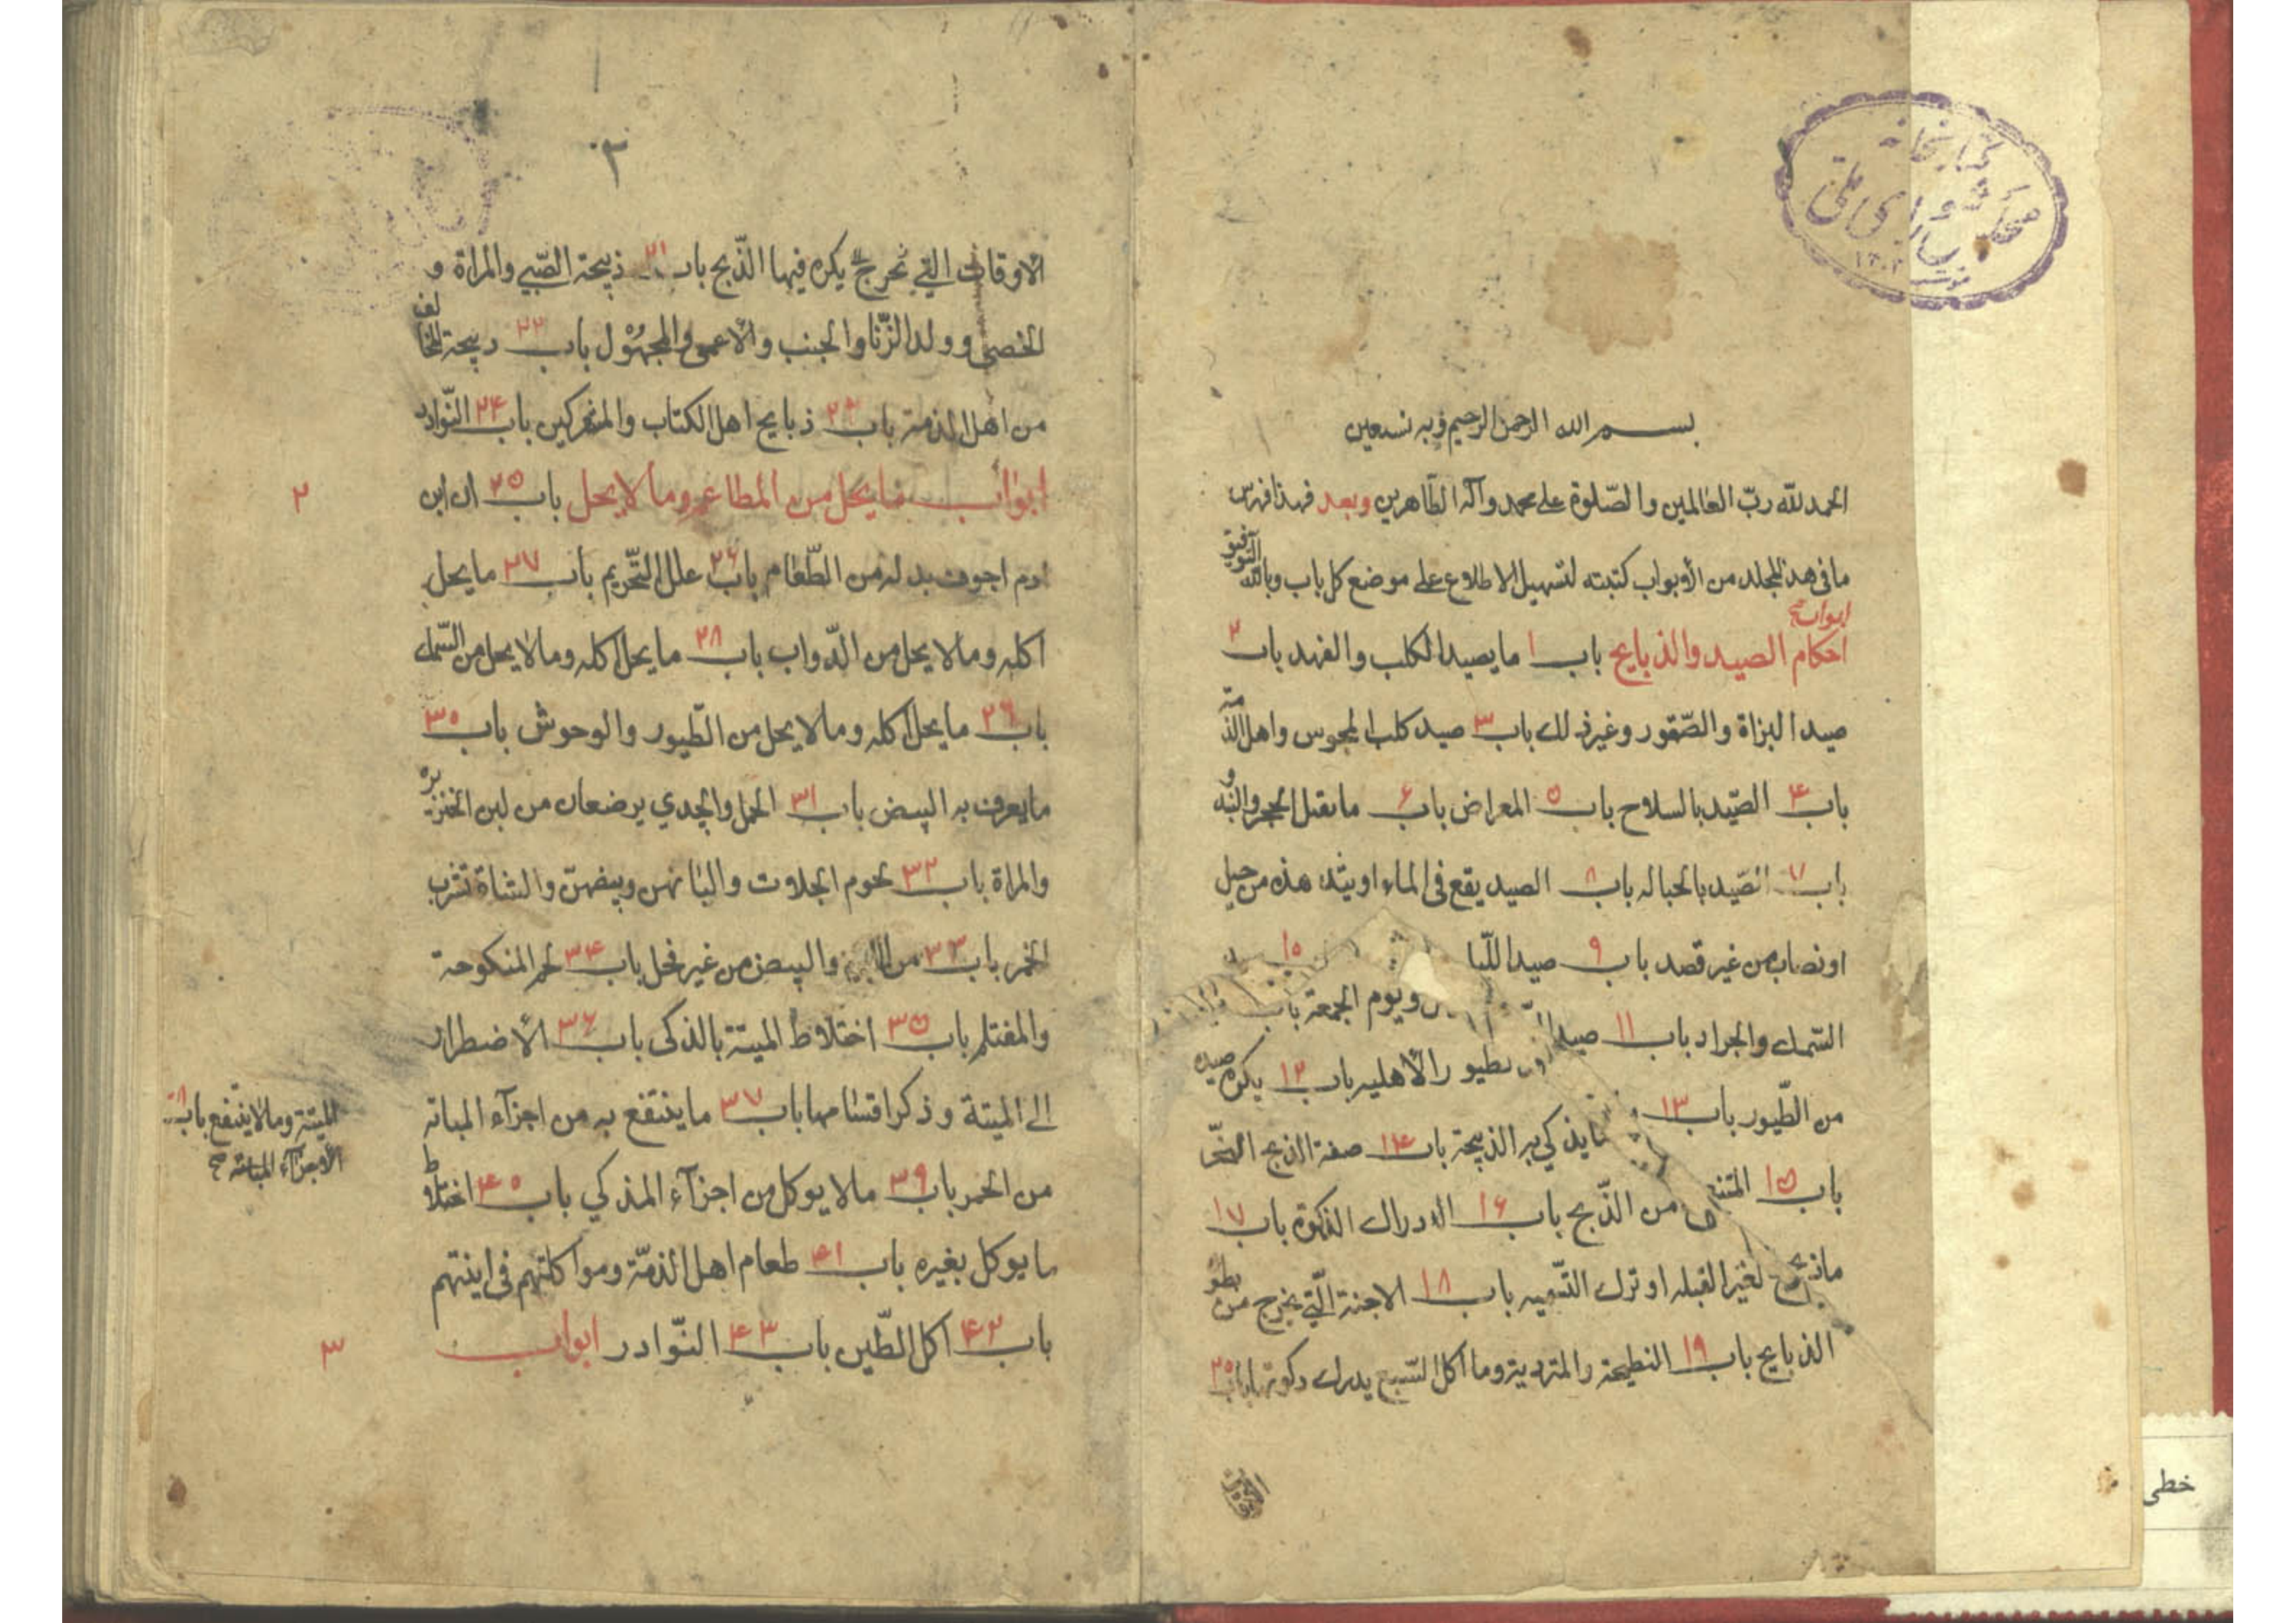 كتابخانه
مجلس شورای ملی
بسم الله الرحمن الرحيم وبه نستعين
الحمد لله ربّ العالمين والصّلوة على محمد وآله الطّاهرين وبعد فهذا فهرس
ما في هذا المجلد من الأبواب كتبته لتسهيل الاطلاع على موضع كل باب وبالله التوفيق
ابواب صح
احكام الصيد والذبايح باب ١ ما يصيد الكلب والفهد باب ٢
صيد البزاة والصّقور وغير ذلك باب ٣ صيد كلب المجوس واهل الذّمة
باب ۴ الصّيد بالسلاح باب ۵ المعراض باب ۶ ما يقتل الحجر والبندق
باب ٧ الصّيد بالحباله باب ٨ الصيد يقع في الماء او يتدهده من جبل
او نصاب من غير قصد باب ٩ صيد اللّيل باب ١٠ صيد
السّمك والجراد باب ١١ صيد ويوم الجمعة باب
طيور الأهليه باب ١٢ يكره صيده
من الطّيور باب ١٣ ما يذكي به الذبيحة باب ١۴ صفة الذبح النّحر
باب ١۵ من الذّبح باب ١۶ الادراك الذكوة باب ١٧
ما ذبح لغير القبله او ترك التّسميه باب ١٨ الاجنة الّتي يخرج من بطو
الذبايح باب ١٩ النطيحة والمتردية وما اكل السّبع يدرك ذكوتها باب ٢٠
٢
الاوقات التي يكره فيها الذّبح باب ٢١ ذبيحة الصّبي والمراة و
الخصي وولد الزّنا والجنب والأعمى والمجهُول باب ٢٢ ذبيحة المخالف
من اهل الذمة باب ٢٣ ذبايح اهل الكتاب والمشركين باب ٢۴ النّوادر
ابواب ما يحل من المطاعم وما لا يحل باب ٢۵ ان ابن
٢
ادم اجوف بد له من الطّعام باب ٢۶ علل التّحريم باب ٢٧ ما يحل
اكله وما لا يحل من الدّواب باب ٢٨ ما يحل اكله وما لا يحل من السّمك
باب ٢٩ ما يحل اكله وما لا يحل من الطّيور والوحوش باب ٣٠
ما يعرف به البيض باب ٣١ الحمل والجدي يرضعان من لبن الخنزيرة
والمراة باب ٣٢ لحوم الجلات والبانهن وبيضهنّ والشاة تشرب
الخمر باب ٣٣ من اللبن والبيض من غير فحل باب ٣۴ لحم المنكوحة
والمغتلم باب ٣۵ اختلاط الميتة بالذكى باب ٣۶ الأضطرار
الى الميتة وذكر اقسامها باب ٣٧ ما ينتفع به من اجزآء المباته
الميتة وما لا ينتفع باب ٣٨
الأجزآء المباته صح
من الحمر باب ٣٩ ما لا يوكل من اجزآء المذكي باب ۴٠ اختلاط
ما يوكل بغيره باب ۴١ طعام اهل الذمّة ومواكلتهم في اينتهم
باب ۴٢ اكل الطّين باب ۴٣ النّوادر ابواب
٣
خطی